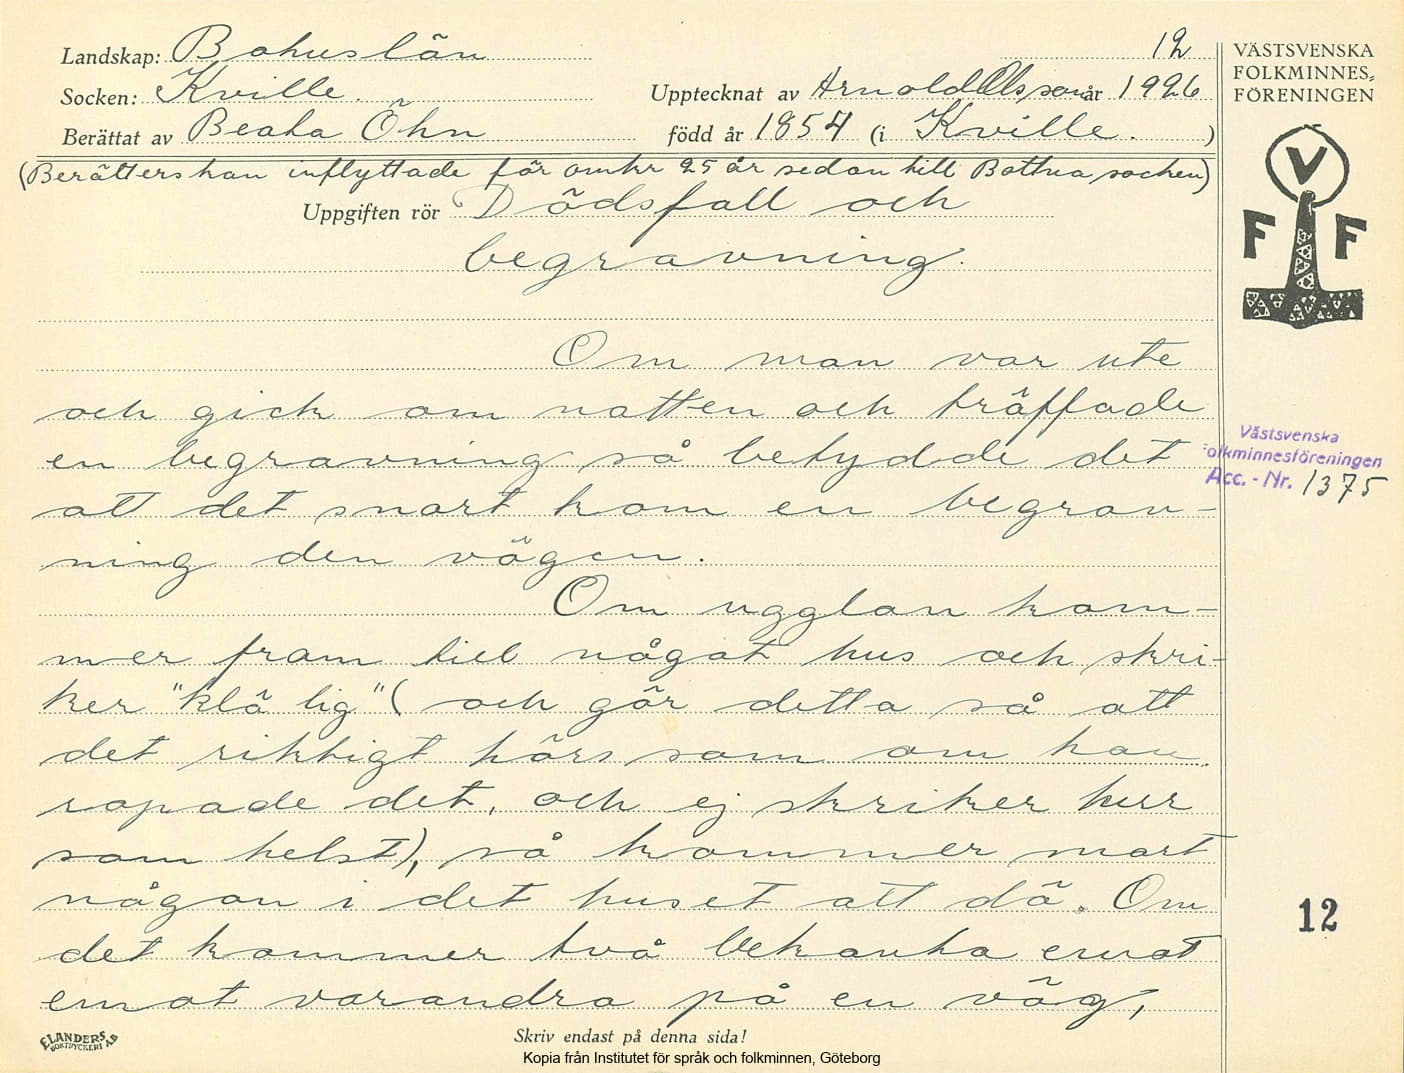 Landskap: Bohuslän 12
Socken: Kville. Upptecknat av Arnold Olsson år 1926
Berättat av Beata Öhn född år 1854 (i Kville. )
(Berätterskan inflyttade för omkr 25 år sedan till Bottna socken)
Uppgiften rör Dödsfall och
begravning.
Om man var ute
och gick om natten och träffade
en begravning så betydde det
att det snart kom en begrav-
ning den vägen.
Om ugglan kom-
mer fram till något hus och skri-
ker "klä lig" (och gör detta så att
det riktigt hörs som om hon
ropade det, och ej skriker hur
som helst), så kommer snart
någon i det huset att dö. Om
det kommer två bekanta emot
emot varandra på en väg,
Skriv endast på denna sida!
ELANDERS
BOKTRYCKERI AB
Kopia från Institutet för språk och folkminnen, Göteborg
VÄSTSVENSKA
FOLKMINNES-
FÖRENINGEN
V
F F
Västsvenska
Folkminnesföreningen
Acc. - Nr. 1375
12